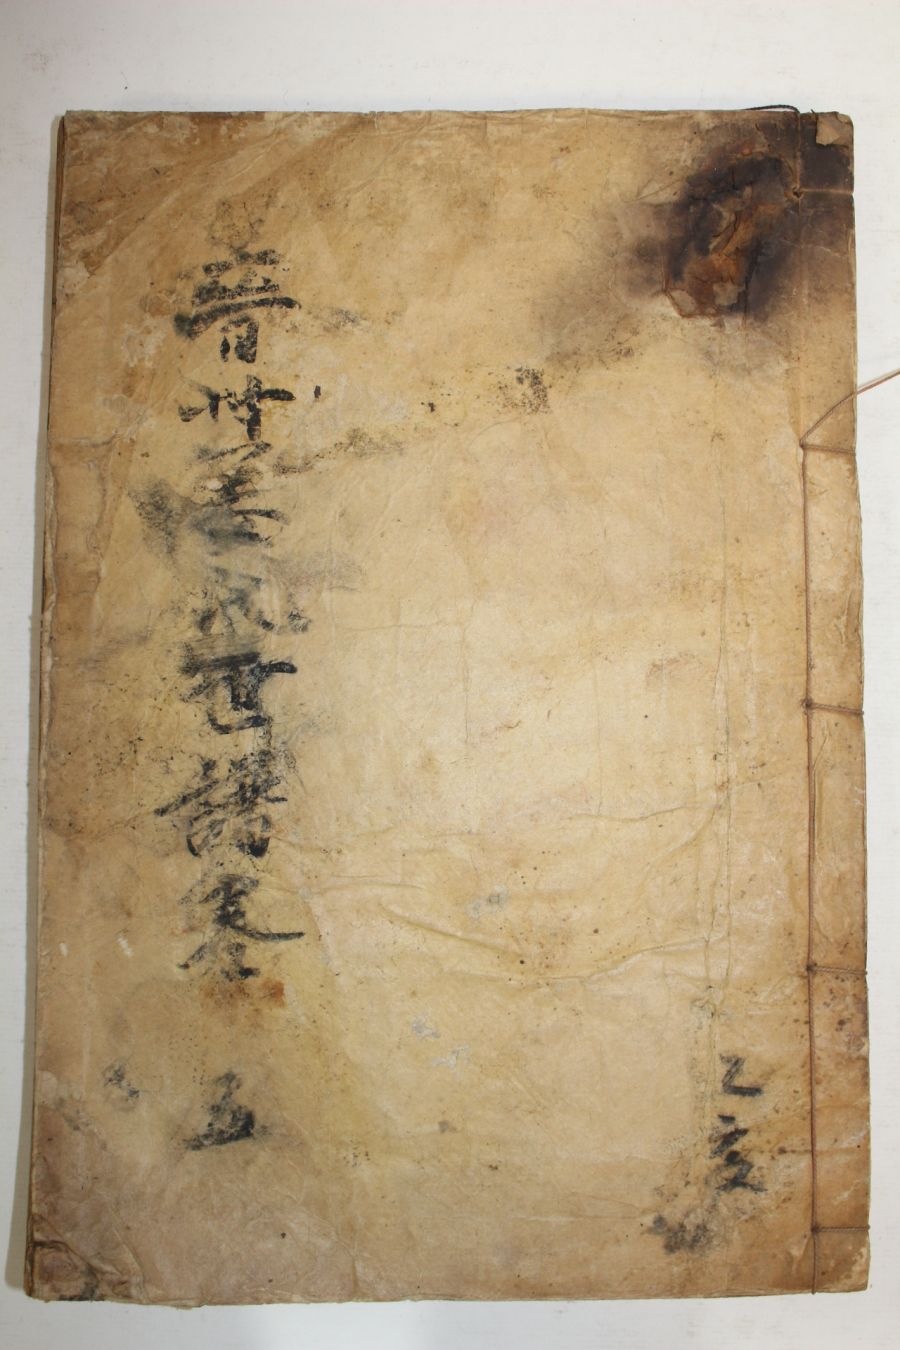 乙亥
晉州姜氏世譜卷五